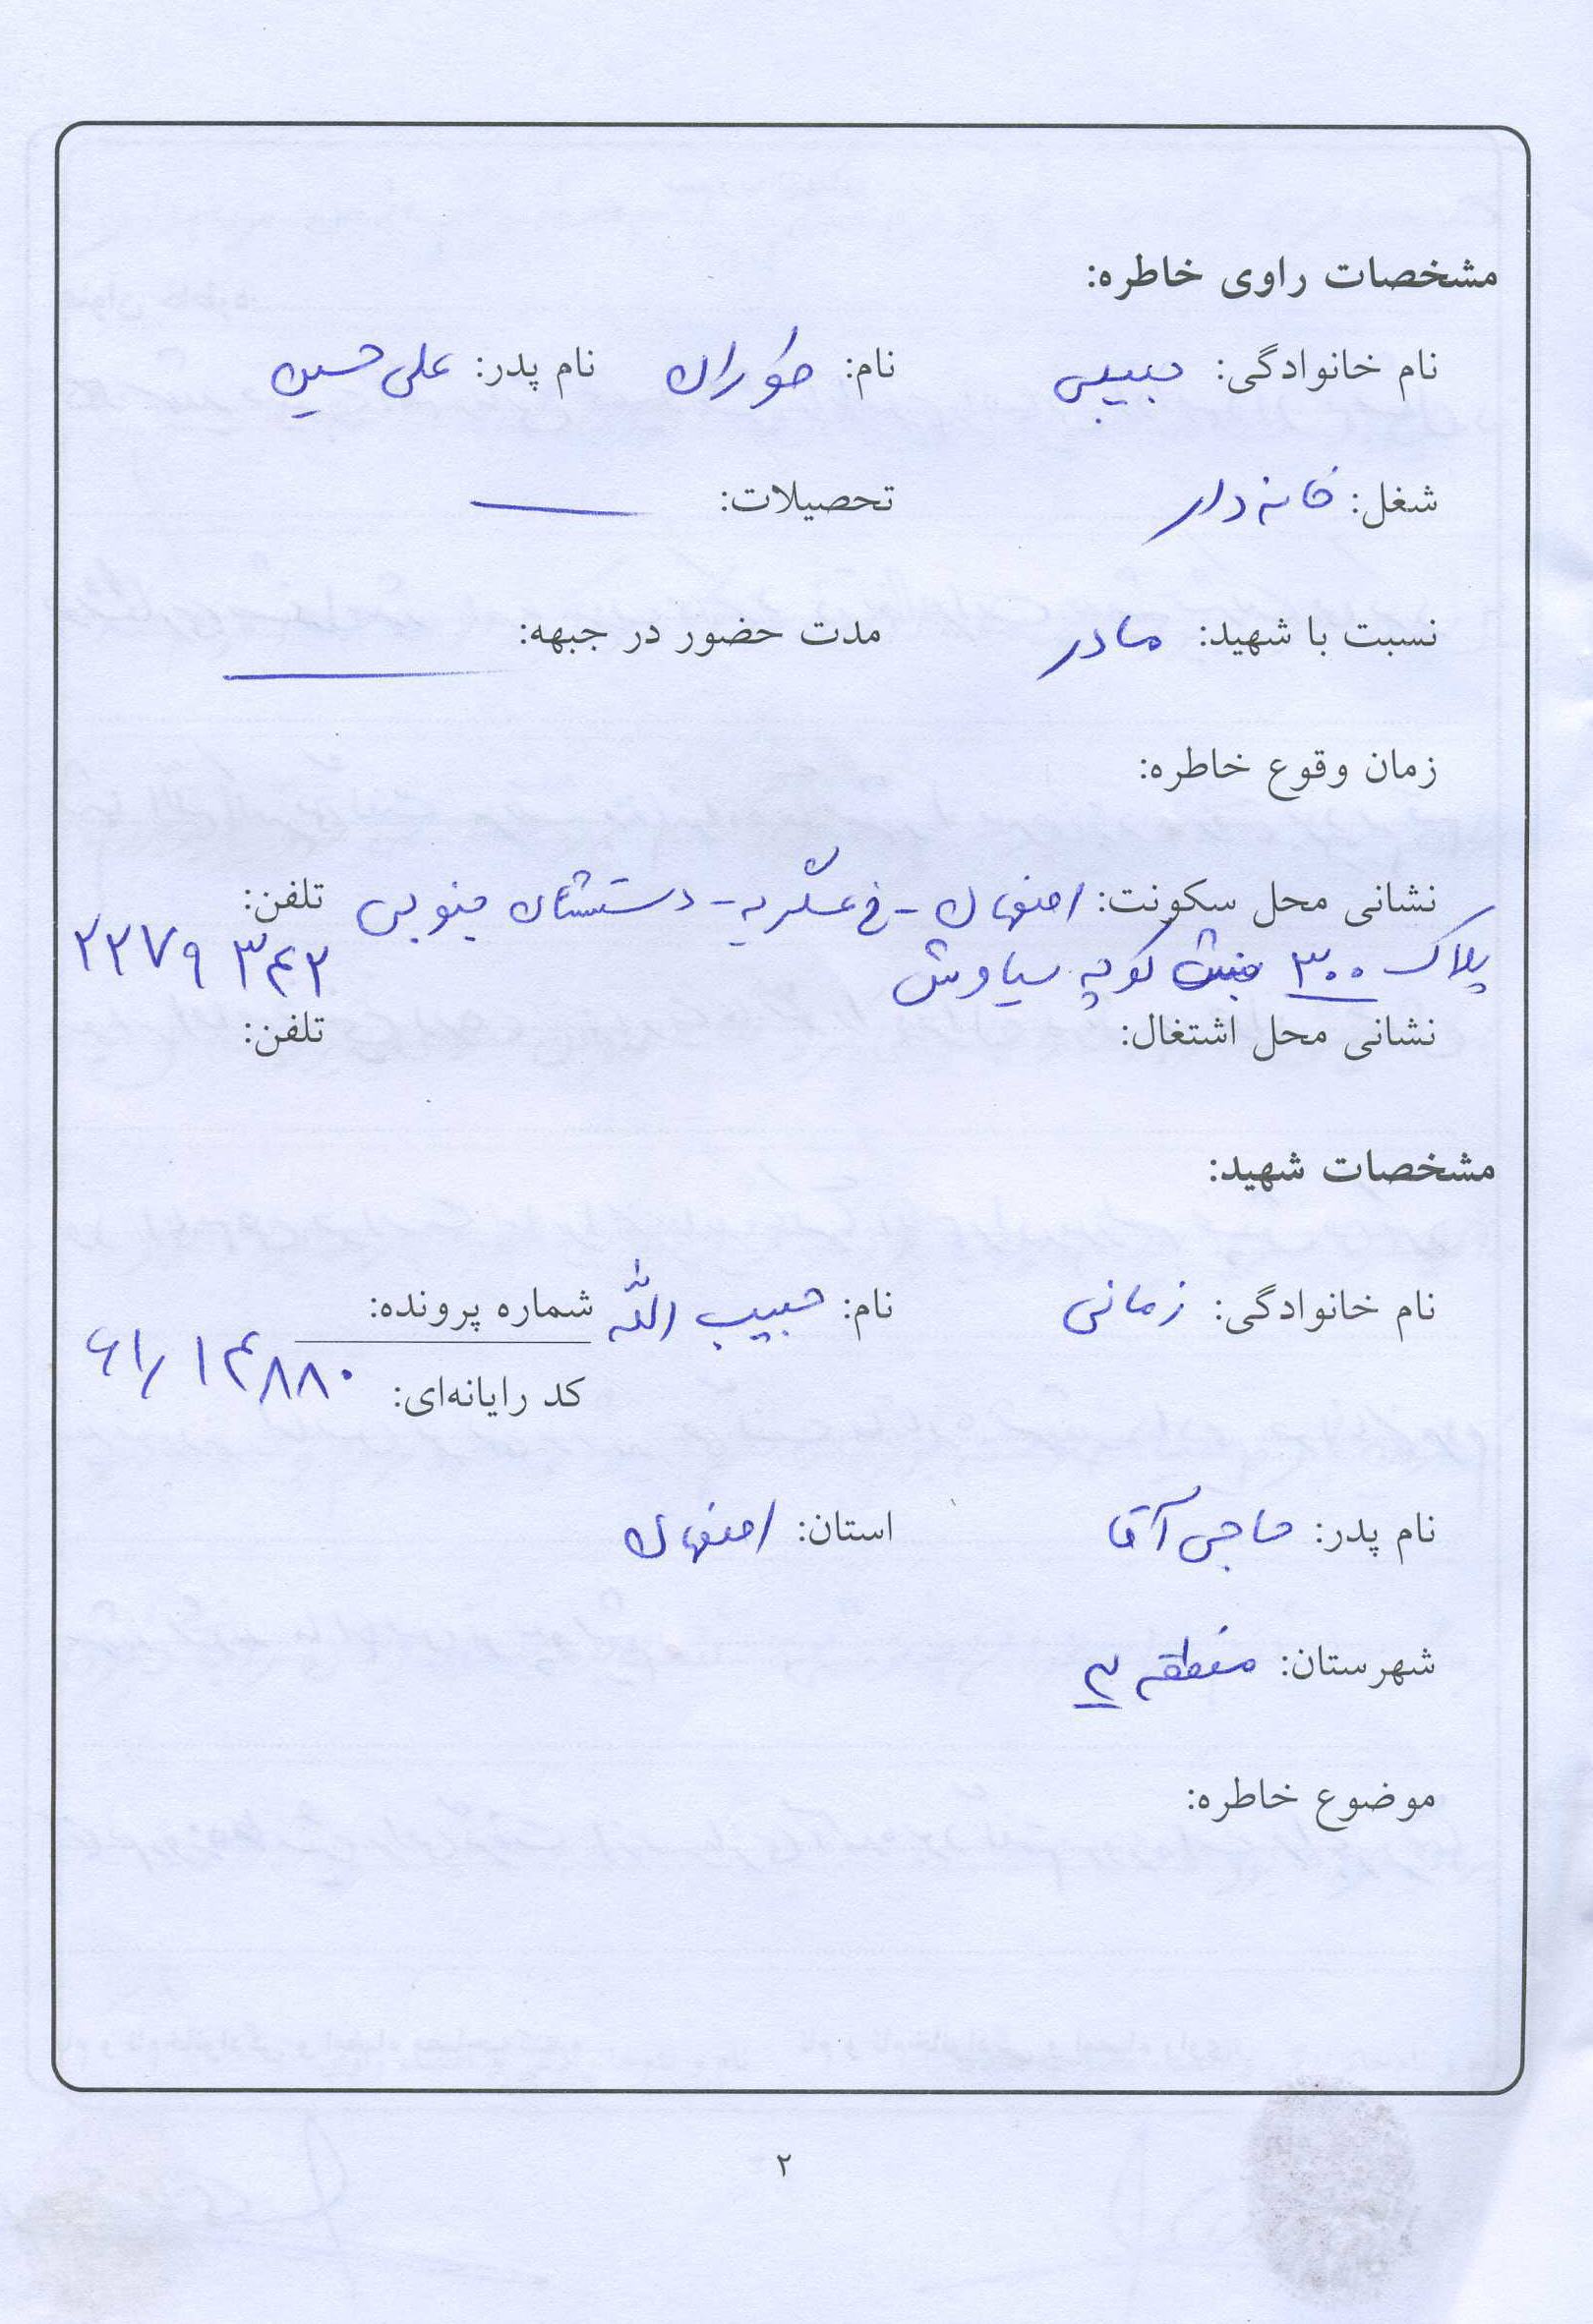 مشخصات راوی خاطره:
نام خانوادگی: حبیبی نام: طوران نام پدر: علی حسین
شغل: خانه دار تحصیلات: ــــ
نسبت با شهید: مادر مدت حضور در جبهه: ــــ
زمان وقوع خاطره:
نشانی محل سکونت: اصفهان - خ عسگریه - جنوبی تلفن:
پلاک ۳۰۰ نبش کوچه سیاوش ۲۲۷۹۳۴۲
نشانی محل اشتغال: تلفن:
مشخصات شهید:
نام خانوادگی: زمانی نام: حبیب الله شماره پرونده:
کد رایانه‌ای: ۶۱/۱۴۸۸۰
نام پدر: حاجی آقا استان: اصفهان
شهرستان: منطقه
موضوع خاطره:
۲